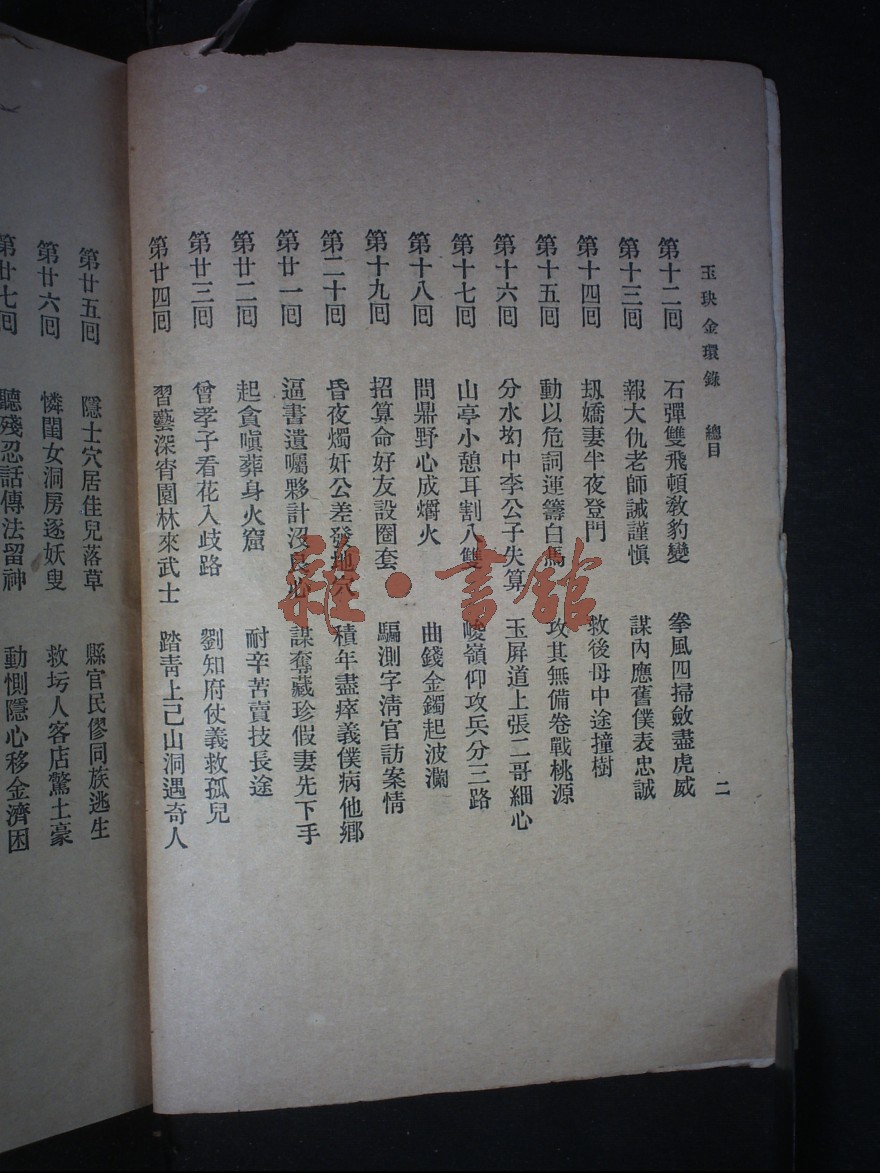 玉玦金環錄 總目 二
第十二囘 石彈雙飛頓教豹變 拳風四掃斂盡虎威
第十三囘 報大仇老師誡謹慎 謀內應舊僕表忠誠
第十四囘 刼嬌妻半夜登門 救後母中途撞樹
第十五囘 動以危詞運籌白馬 攻其無備卷戰桃源
第十六囘 分水坳中李公子失算 玉屏道上張二哥細心
第十七囘 山亭小憩耳割八雙 峻嶺仰攻兵分三路
第十八囘 問鼎野心成爝火 曲錢金鐲起波瀾
第十九囘 招算命好友設圈套 騙測字淸官訪案情
第二十囘 昏夜燭奸公差發地穴 積年盡瘁義僕病他鄉
第廿一囘 逼書遺囑夥計沒良心 謀奪藏珍假妻先下手
第廿二囘 起貪嗔葬身火窟 耐辛苦賣技長途
第廿三囘 曾孝子看花入歧路 劉知府仗義救孤兒
第廿四囘 習藝深宵園林來武士 踏靑上巳山洞遇奇人
第廿五囘 隱士穴居佳兒落草 縣官民僇同族逃生
第廿六囘 憐閨女洞房逐妖叟 救圬人客店驚土豪
第廿七囘 聽殘忍話傳法留神 動惻隱心移金濟困
雜·書館